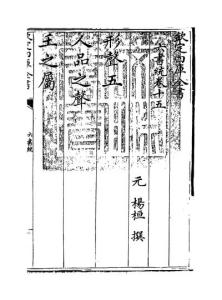 欽定四庫全書
六書統卷十五
元 楊桓 撰
形聲五
人品之聲
王之屬